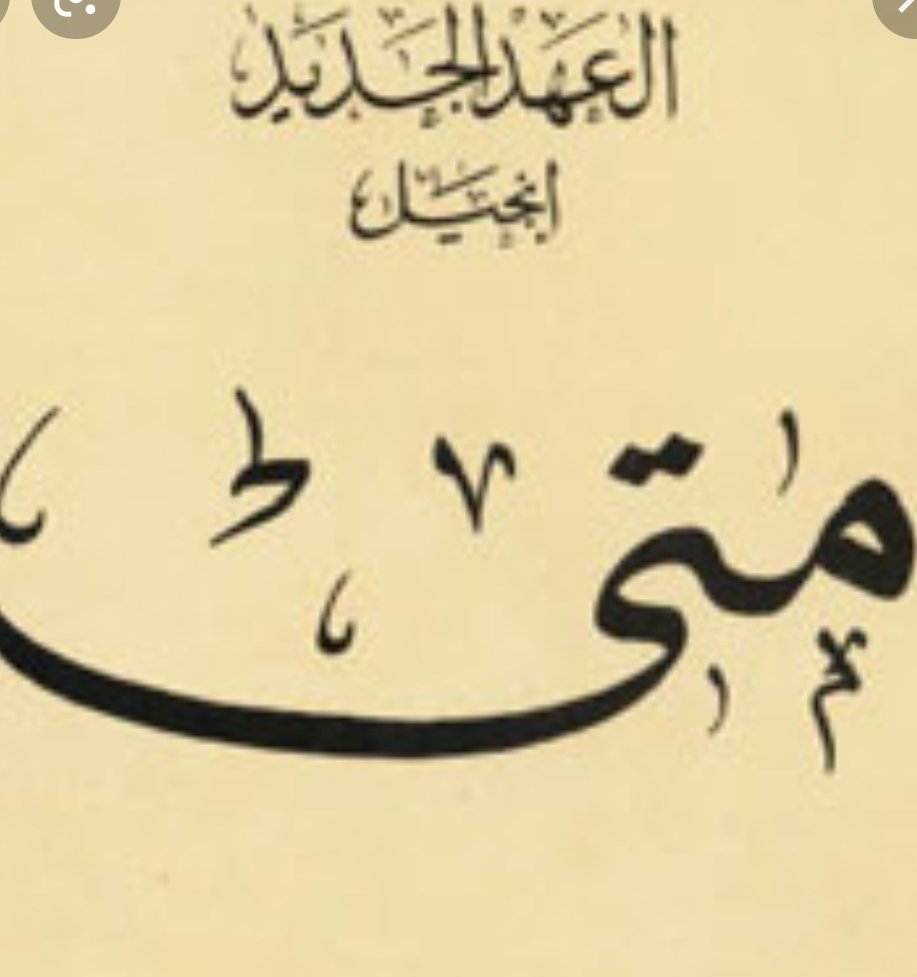 العهد الجديد
انجيل
متى